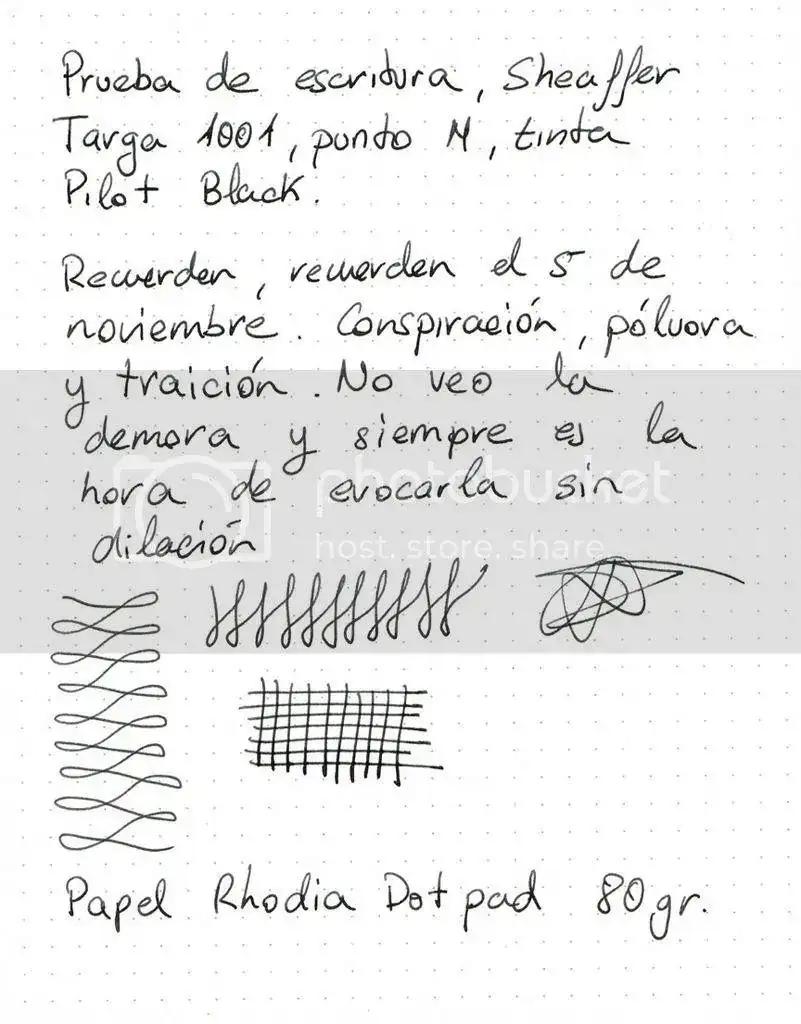 Prueba de escritura, Sheaffer
Targa 1001, punto M, tinta
Pilot Black.
Recuerden, recuerden el 5 de
noviembre. Conspiración, pólvora
y traición. No veo la
demora y siempre es la
hora de evocarla sin
dilación
photobucket
host. store. share.
Papel Rhodia Dot pad 80 gr.